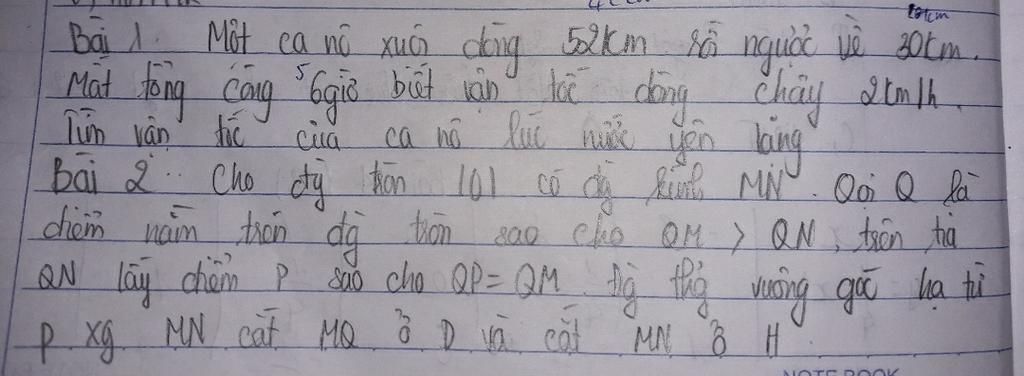 Bài 1. Một ca nô xuôi dòng 52km rồi ngược về 30km.
Mất tổng cộng 5 6giờ biết vận tốc dòng chảy 2km/h.
Tìm vận tốc của ca nô lúc nước yên lặng
Bài 2: Cho đg tròn (O) có đg kính MN. Gọi Q là
điểm nằm trên đg tròn sao cho QM > QN, trên tia
QN lấy điểm P sao cho QP = QM. Đg thg vuông góc hạ từ
P xg MN cắt MQ ở D và cắt MN ở H
NOTE BOOK